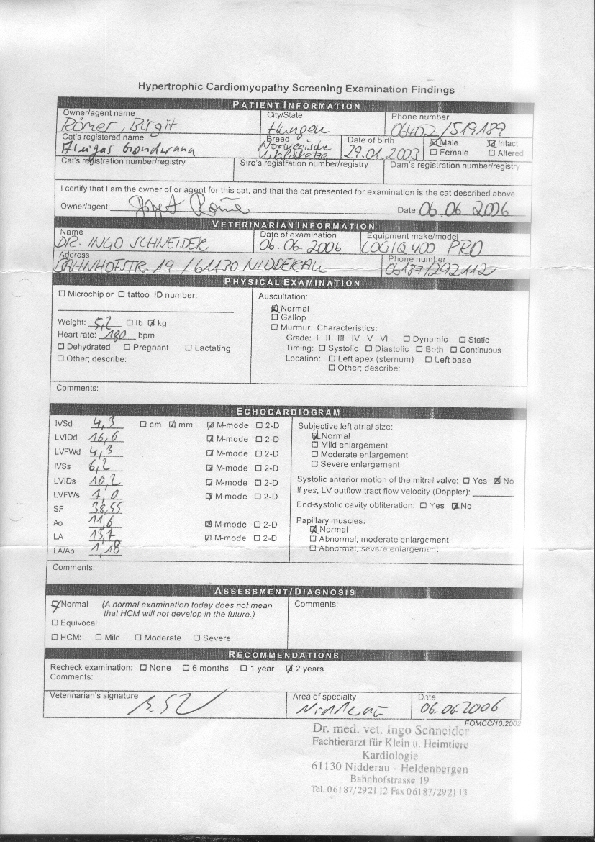 Hypertrophic Cardiomyopathy Screening Examination Findings
PATIENT INFORMATION
Owner/agent name City/State Phone number
Römer, Birgit Hungen 06402/519189
Cat's registered name Breed Date of birth Male Intact
Norwegische 29.01.2003 Female Altered
Cat's registration number/registry Sire's registration number/registry Dam's registration number/registry
I certify that I am the owner of or agent for this cat, and that the cat presented for examination is the cat described above.
Owner/agent Date 06.06.2006
VETERINARIAN INFORMATION
Name Date of examination Equipment make/model
DR. INGO SCHNEIDER 06.06.2006 LOGIQ 400 PRO
Address Phone number
BAHNHOFSTR. 19 / 61130 NIDDERAU 06187/292112
PHYSICAL EXAMINATION
Microchip or tattoo ID number: Auscultation:
Normal
Gallop
Weight: 5,2 lb kg Murmur Characteristics:
Heart rate: 180 bpm Grade: I II III IV V VI Dynamic Static
Dehydrated Pregnant Lactating Timing: Systolic Diastolic Both Continuous
Other; describe: Location: Left apex (sternum) Left base
Other; describe:
Comments:
ECHOCARDIOGRAM
IVSd 4,3 cm mm M-mode 2-D Subjective left atrial size:
LVIDd 16,6 M-mode 2-D Normal
LVFWd 4,3 M-mode 2-D Mild enlargement
Moderate enlargement
IVSs 6,2 M-mode 2-D Severe enlargement
LVIDs 10,2 M-mode 2-D Systolic anterior motion of the mitral valve: Yes No
LVFWs M-mode 2-D If yes, LV outflow tract flow velocity (Doppler):
SF 38,55 End-systolic cavity obliteration: Yes No
Ao 11,6 M-mode 2-D Papillary muscles:
LA 13,7 M-mode 2-D Normal
LA/Ao 1,18 Abnormal, moderate enlargement
Abnormal, severe enlargement
Comments:
ASSESSMENT/DIAGNOSIS
Normal (A normal examination today does not mean that HCM will not develop in the future.) Comments:
Equivocal
HCM: Mild Moderate Severe
RECOMMENDATIONS
Recheck examination: None 6 months 1 year 2 years
Comments:
Veterinarian's signature Area of specialty Date
06.06.2006
Dr. med. vet. Ingo Schneider
Fachtierarzt für Klein u. Heimtiere
Kardiologie
61130 Nidderau - Heldenbergen
Bahnhofstrasse 19
Tel. 06187/292112 Fax 06187/292113